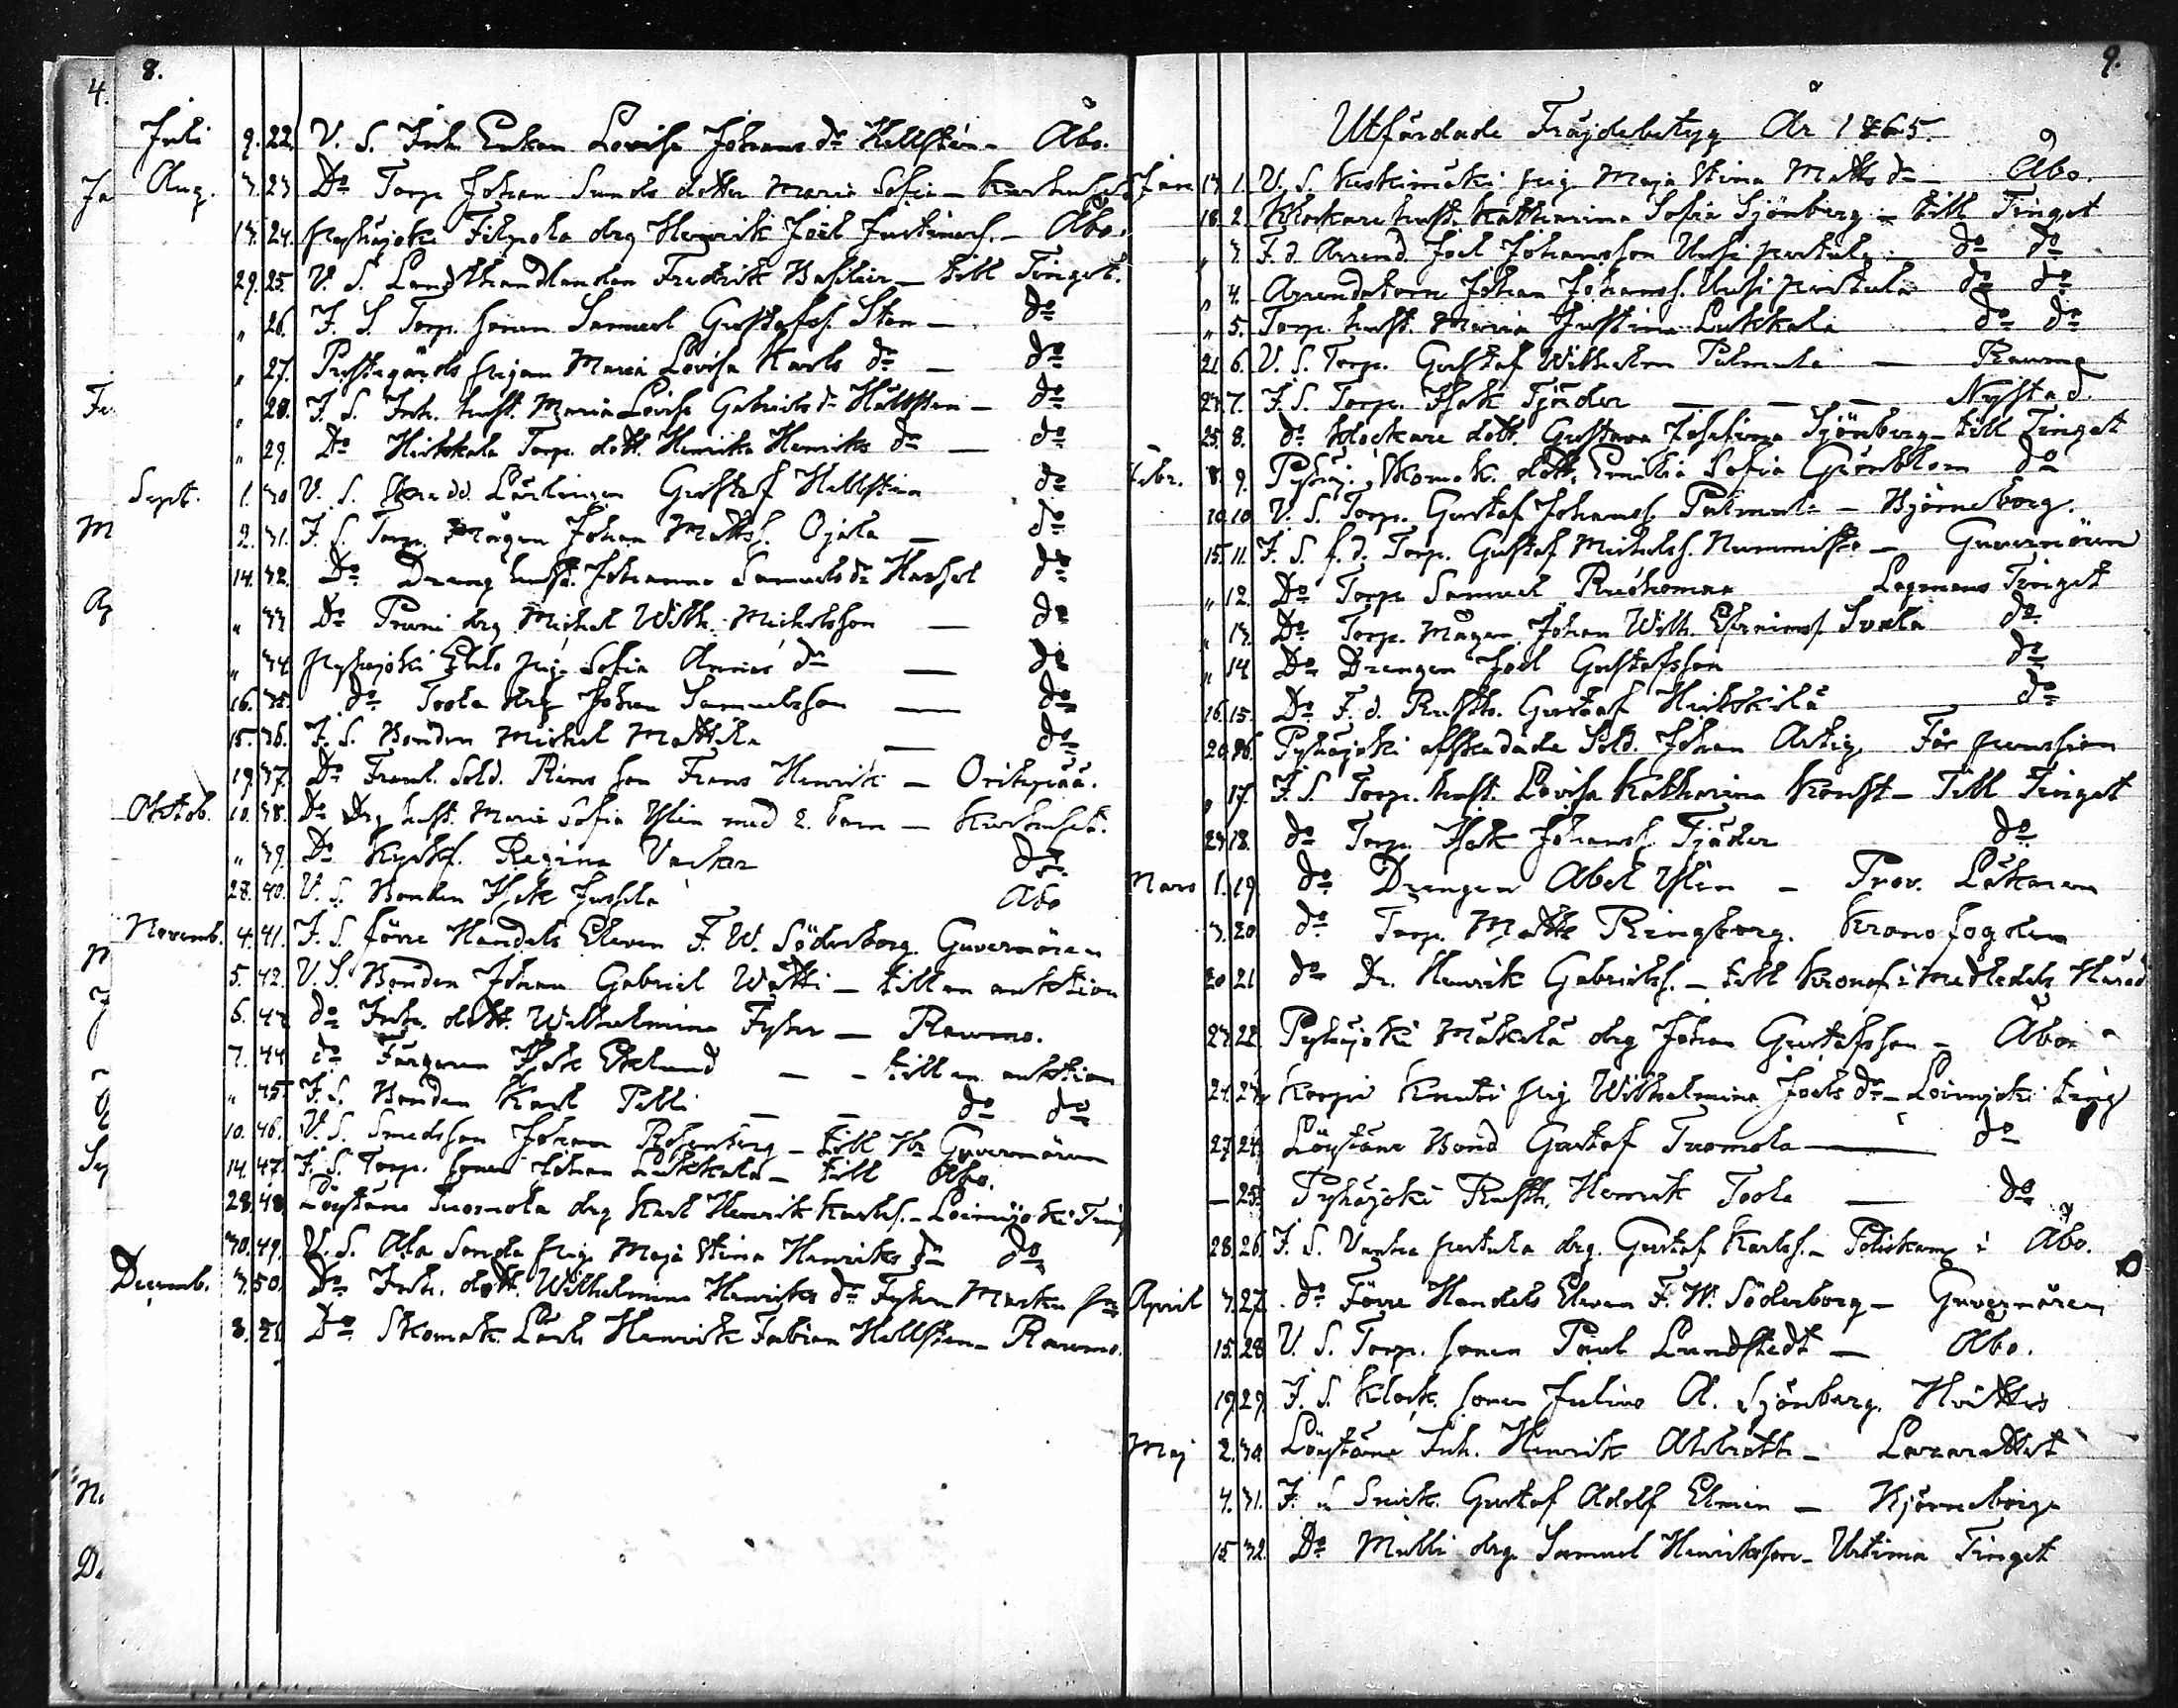 8.
Juli 9. 22. V. S. Inh. Enkan Lovisa Johans dr Hellstén - Åbo.
Aug. 3. 23 Do Torp. Johan Sunds dotter Maria Sofia - Kurhuset
13. 24. Pyhäjoki Filpola drg Henrik Joel Justinuss. - Åbo.
29. 25. V. S. Landthandlanden Fredrik Basilier - till Tinget.
" 26. Y. S. Torp. sonen Samuel Gustafss. Sten - do
" 27. Prestegårds pigan Maria Lovisa Karls dr - do
" 28. Y. S. Inh. hust. Maria Lovisa Gabriels dr Hällsten - do
" 29. Do Heikkala Torp. dott. Henrika Henriks dr - do
Sept. 1. 30 V. S. Lärlingen Gustaf Hellsten do
2. 31. Y. S. Torp. Mågen Johan Matts. Ojala - do
14. 32. Do Dreng hust. Johanna Samuels dr Hassel do
" 33 Do Pruni drg Michel Wilh. Michelsson - do
" 34. Pyhäjoki Eklo pig. Sofia Annas dr - do
16. 35. do Toola drg Johan Samuelsson - do
15. 36. Y. S. Bonden Michel Mattila - do
19. 37. Do Framl. Sold. Rims son Frans Henrik - Oripää.
Oktob. 10. 38. Do Drg hust. Maria Sofia Uslin med 2. barn - Kurhuset.
" 39. Do Kyrkf. Regina Vacker do
28. 40. V. S. Bonden Isak Jussila Åbo
Novemb. 4. 41. Y. S. förre Handels Eleven F. W. Söderborg. Guvernören
5. 42. V. S. Bonden Johan Gabriel Watti - till en auktion
6. 43 do Inh. dott. Wilhelmina Fyhr - Raumo.
7. 44 do Färgaren Isak Eklund - - till en auktion
" 45. Y. S. Bonden Karl Pelli - - do do
10. 46. V. S. Smedsson Johan Rosenberg - till Hr Guvernören
14. 47. Y. S. Torp. sonen Johan Lukkala - till Åbo.
28. 48. Löystäne Tuomola drg Karl Henrik Karlss. - Loimijoki Ting
30. 49. V. S. Ala Sonela pig. Maja Stina Henriks dr do
Decemb. 3. 50. Do Inh. dott. Wilhelmina Henriks dr Fyhr
8. 51. Do Skomak. Lärl. Henrik Fabian Hellsten - Raumo.
9.
Utfärdade Fräjdebetyg År 1865.
Jan 13 1. V. S. Keskimäki pig. Maja Stina Matts dr - Åbo.
18. 2. Klockare hust. Katharina Sofia Sjönberg - till Tinget
" 3 F. d. Arrend. Joel Johansson Uusi pertula do do
" 4. Arrendatorn Johan Johanss. Uusi pertula do do
" 5. Torp. hust. Maria Justina Lukkala do do
21. 6. V. S. Torp. Gustaf Wilhelm Palmula - Raumo
23. 7. Y. S. Torp. Isak Tjäder - - - Nystad.
25. 8. do Klockare dott. Gustava Josefina Sjönberg - till Tinget
Febr. 8. 9. Pyhäj. Skomak. dott. Emilia Sofia Grönblom do
10. 10. V. S. Torp. Gustaf Johanss. Palmula - Björneborg.
15. 11. Y. S. f. d. Torp. Gustaf Michelss. Nummisto - Guvernören
" 12. Do Torp. Samuel Ruohomaa Lagmans Tinget
" 13. Do Torp. Mågen Johan Wilh. Efraimss. Svala do
" 14 Do Drengen Joel Gustafsson do
16. 15. Do F. d. Rusth. Gustaf Heikkilä do
20. 16. Pyhäjoki afskedade Sold. Johan Artig. För pension
" 17. Y. S. Torp. hust. Lovisa Katharina Konst - Till Tinget
23 18. do Torp. Isak Johanss. Tjäder do
Mars 1. 19. do Drengen Abel Uslin - Prov. Läkaren
3. 20. do Torp. Matts Ringborg. Kronofogden
20 21 do Dr. Henrik Gabrielss. - till Kronof. i Medledels Härad
23 22. Pyhäjoki Mäkelä drg Johan Gustafsson - Åbo
24. 23. Korpi Knuti pig Wilhelmina Joels dr - Loimijoki ting
27 24. Löystäne Bond Gustaf Tuomola - do
- 25. Pyhäjoki Rusth. Henrik Toola - do
28. 26. Y. S. Vanha pertula drg. Gustaf Karlss. - Poliskam. i Åbo.
April 3. 27. do Förre Handels Eleven F. W. Söderborg - Guvernören
15. 28 V. S. Torp. sonen Paul Lundstedt - Åbo.
19. 29. Y. S. Klock. sonen Julius A. Sjönberg. Hvittis
Maj 2. 30. Löystäne Inh. Henrik Ahlroth - Lazarettet
4. 31. Y. S. Snick. Gustaf Adolf Elmén - Björneborg
15 32. Do Mulli drg. Samuel Henriksson - Urtima Tinget